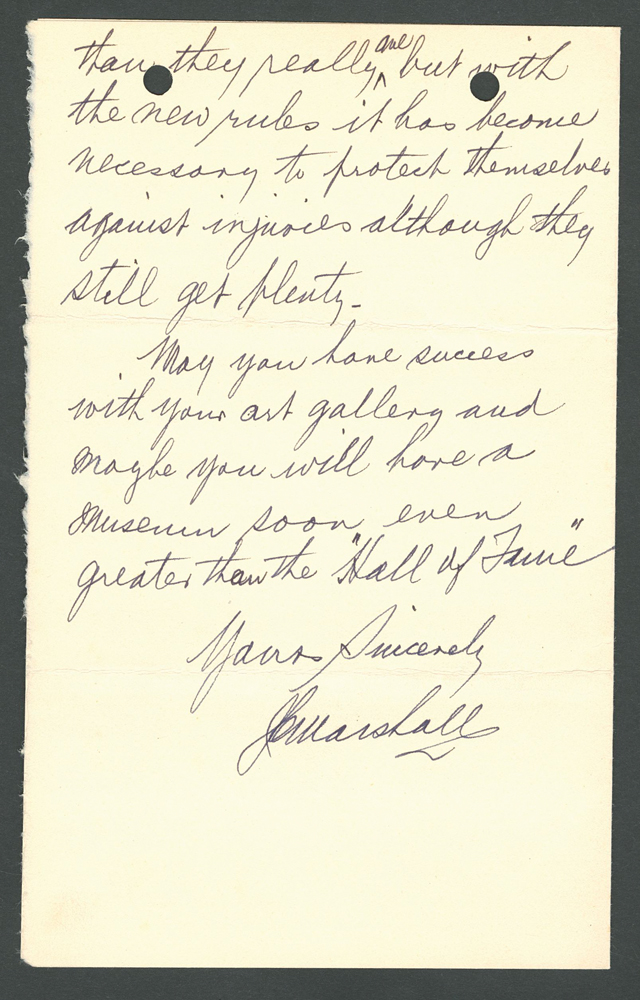 than they really are but with
the new rules it has become
necessary to protect themselves
against injuries although they
still get plenty.
May you have success
with your art gallery and
maybe you will have a
museum soon even
greater than the "Hall of Fame"
Yours Sincerely
Marshall